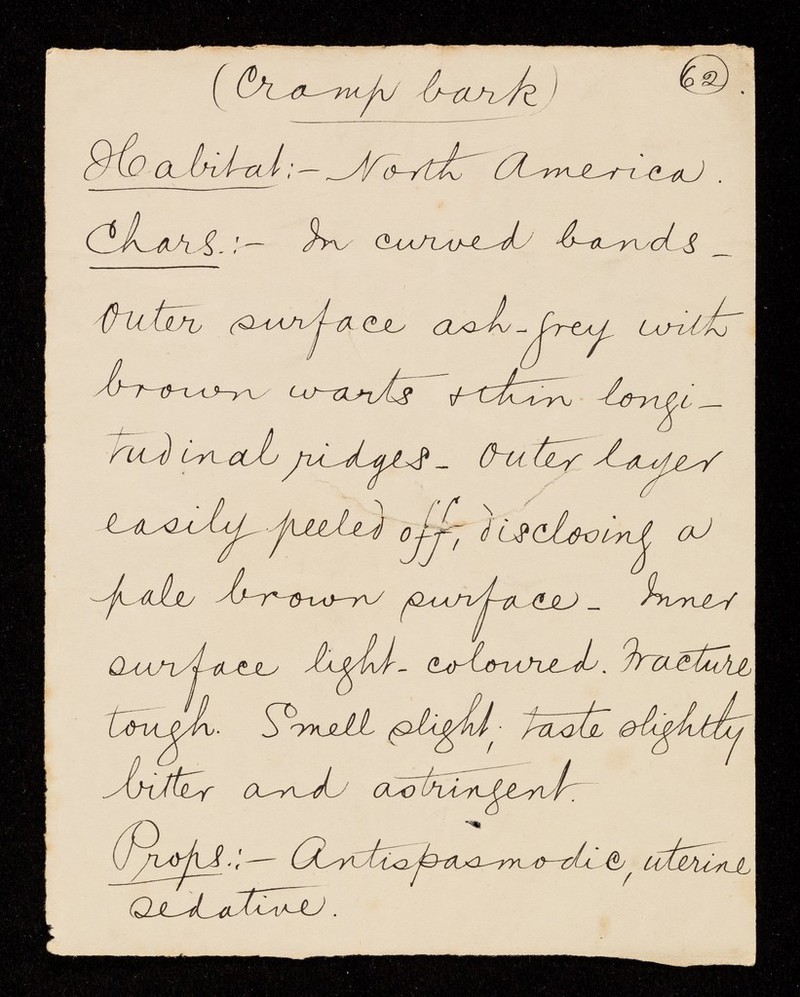 (Cramp bark) 62.
Habitat:- North America.
Chars.:- In curved bands -
Outer surface ash-grey with
brown warts & thin longi-
tudinal ridges - Outer layer
easily peeled off, disclosing a
pale brown surface - Inner
surface light-coloured. Fracture
tough. Smell slight; taste slightly
bitter and astringent.
Props.:- Antispasmodic, uterine
sedative.